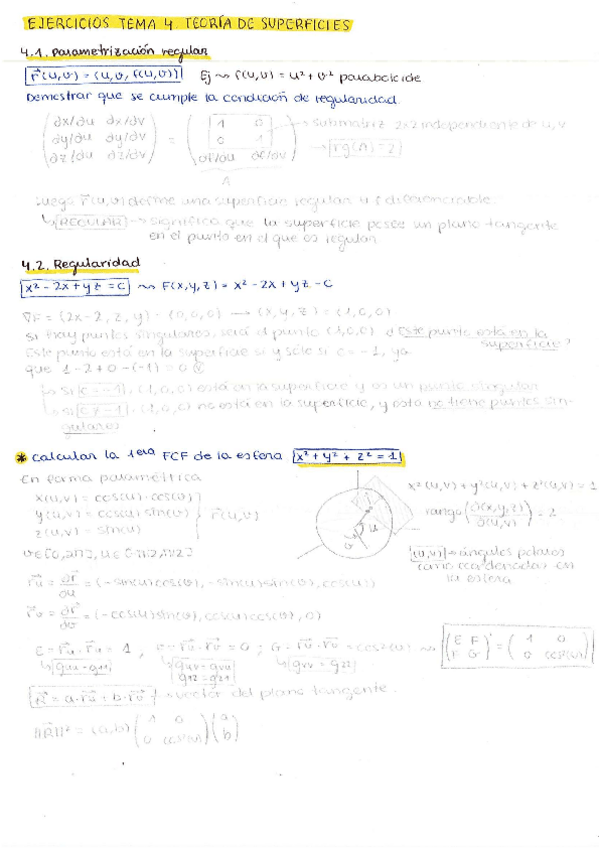 EJERCICIOS TEMA 4. TEORÍA DE SUPERFICIES
4.1. Parametrización regular
r⃗(u,v) = (u, v, f(u,v)) Ej ⇝ f(u,v) = u² + v² paraboloide
Demostrar que se cumple la condición de regularidad.
∂x/∂u ∂x/∂v 1 0 → submatriz 2x2 independiente de u, v
∂y/∂u ∂y/∂v = 0 1 → rg(A) = 2
∂z/∂u ∂z/∂v ∂f/∂u ∂f/∂v
A
Luego r⃗(u,v) define una superficie regular si f diferenciable.
↳ REGULAR → significa que la superficie posee un plano tangente
en el punto en el que es regular
4.2. Regularidad
x² - 2x + yz = c ⇝ F(x,y,z) = x² - 2x + yz - c
∇F = (2x-2, z, y) = (0,0,0) → (x,y,z) = (1,0,0).
Si hay puntos singulares, será el punto (1,0,0) ¿Este punto está en la
superficie?
Este punto está en la superficie si y sólo si c = -1, ya
que 1-2+0-(-1) = 0
↳ si c = -1, (1,0,0) está en la superficie y es un punto singular
↳ si c ≠ -1, (1,0,0) no está en la superficie, y esta no tiene puntos sin-
gulares
* Calcular la 1era FCF de la esfera x² + y² + z² = 1
En forma paramétrica
x(u,v) = cos(u)·cos(v) x²(u,v) + y²(u,v) + z²(u,v) = 1
y(u,v) = cos(u) sin(v) r⃗(u,v) rango (∂(x,y,z)/∂(u,v)) = 2
z(u,v) = sin(u)
v∈[0,2π], u∈[-π/2,π/2] (u,v) → ángulos polares
como coordenadas en
la esfera
r⃗u = ∂r⃗/∂u = (-sin(u)cos(v), -sin(u)sin(v), cos(u))
r⃗v = ∂r⃗/∂v = (-cos(u)sin(v), cos(u)cos(v), 0)
E = r⃗u · r⃗u = 1 , F = r⃗u · r⃗v = 0 ; G = r⃗v · r⃗v = cos²(u) ⇝ (E F / F G) = (1 0 / 0 cos²(u))
↳ guu = g11 ↳ guv = gvu ↳ gvv = g22
g12 = g21
R⃗ = a·r⃗u + b·r⃗v → vector del plano tangente.
||R⃗||² = (a,b) (1 0 / 0 cos²(u)) (a / b)